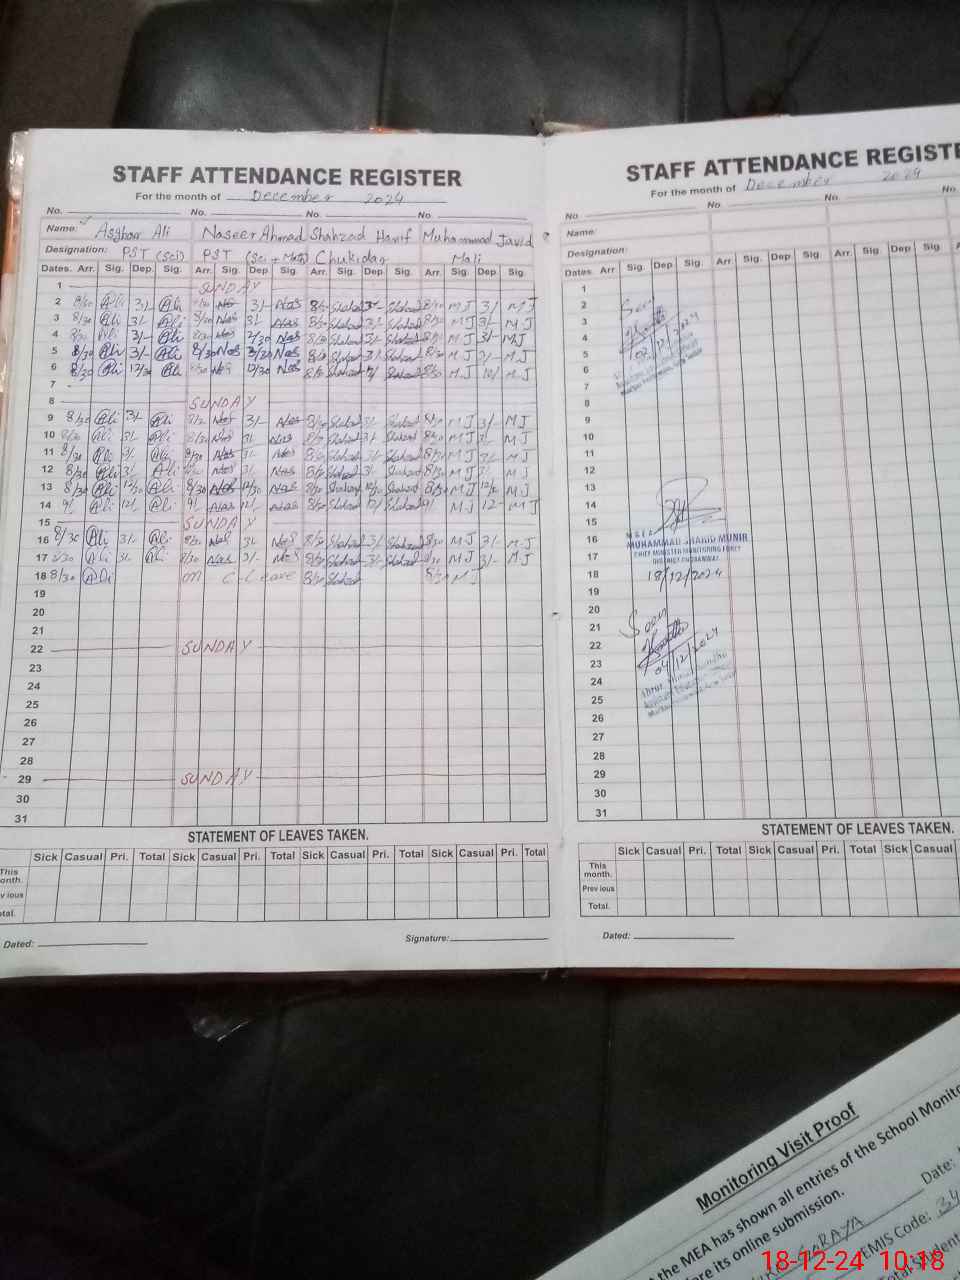 STAFF ATTENDANCE REGISTER
For the month of December 2024
No. No. No. No.
Name: Asghar Ali Naseer Ahmad Shahzad Hanif Muhammad Javid
Designation: PST (Sci) PST (Sci + Math) Chukidar Mali
Dates. Arr. Sig. Dep. Sig. Arr. Sig. Dep Sig. Arr. Sig. Dep. Sig. Arr. Sig. Dep. Sig.
1 SUNDAY
2 8/30 Ali 3/- Ali Nas 3/- Nas 8/30 Shahzad 3/- Shahzad 8/30 MJ 3/- MJ
3 8/30 Ali 3/- Ali 8/30 Nas 3/- Nas 8/30 Shahzad 3/- Shahzad 8/30 MJ 3/- MJ
4 8/30 Ali 3/- Ali Nas Nas 8/30 Shahzad 3/- Shahzad 8/30 MJ 3/- MJ
5 8/30 Ali 3/- Ali 8/30 Nas Nas 8/30 Shahzad 3/- Shahzad 8/30 MJ 3/- MJ
6 8/30 Ali 12/30 Ali 8/30 Nas 12/30 Nas 8/30 Shahzad 12/ Shahzad 8/30 MJ 12/ MJ
7
8 SUNDAY
9 8/30 Ali 3/- Ali Nas 3/- Nas 8/30 Shahzad 3/- Shahzad 8/30 MJ 3/- MJ
10 8/30 Ali 3/- Ali 8/30 Nas 3/- Nas 8/30 Shahzad 3/- Shahzad 8/30 MJ 3/- MJ
11 8/30 Ali 3/- Ali Nas 3/- Nas 8/30 Shahzad 3/- Shahzad 8/30 MJ 3/- MJ
12 8/30 Ali 3/- Ali Nas 3/- Nas 8/30 Shahzad 3/- Shahzad 8/30 MJ 3/- MJ
13 8/30 Ali 12/30 Ali 8/30 Nas 12/30 Nas 8/30 Shahzad 12/30 Shahzad 8/30 MJ 12/30 MJ
14 9/ Ali 12/- Ali 9/ Nas 12/- Nas 9/ Shahzad 12/ Shahzad 9/ MJ 12- MJ
15 SUNDAY
16 8/30 Ali 3/- Ali 8/30 Nas 3/- Nas 8/30 Shahzad 3/- Shahzad 8/30 MJ 3/- MJ
17 8/30 Ali 3/- Ali 8/30 Nas 3/- Nas 8/30 Shahzad 3/- Shahzad 8/30 MJ 3/- MJ
18 8/30 Ali on C-Leave 8/30 Shahzad 8/30 MJ
19
20
21
22 SUNDAY
23
24
25
26
27
28
29 SUNDAY
30
31
STATEMENT OF LEAVES TAKEN.
Sick Casual Pri. Total Sick Casual Pri. Total Sick Casual Pri. Total Sick Casual Pri. Total
This
onth.
v ious
otal.
Dated: Signature:
STAFF ATTENDANCE REGISTE
For the month of December 2024
No. No. No. No.
Name:
Designation:
Dates Arr Sig. Dep Sig. Arr. Sig. Dep Sig. Arr. Sig. Dep Sig.
1
2 Seen
3
4
5 02/12/2024
6
7
8
9
10
11
12
13
14
15
16 MUHAMMAD SHAHID MUNIR
17 CHIEF MINISTER MONITORING FORCE
18 18/12/2024
19
20
21 Seen
22
23 04/12/2024
24
25
26
27
28
29
30
31
STATEMENT OF LEAVES TAKEN.
Sick Casual Pri. Total Sick Casual Pri. Total Sick Casual
This
month.
Prev ious
Total.
Dated:
Monitoring Visit Proof
the MEA has shown all entries of the School Monito
re its online submission.
SORAYA Date:
EMIS Code: 34
18-12-24 10:18